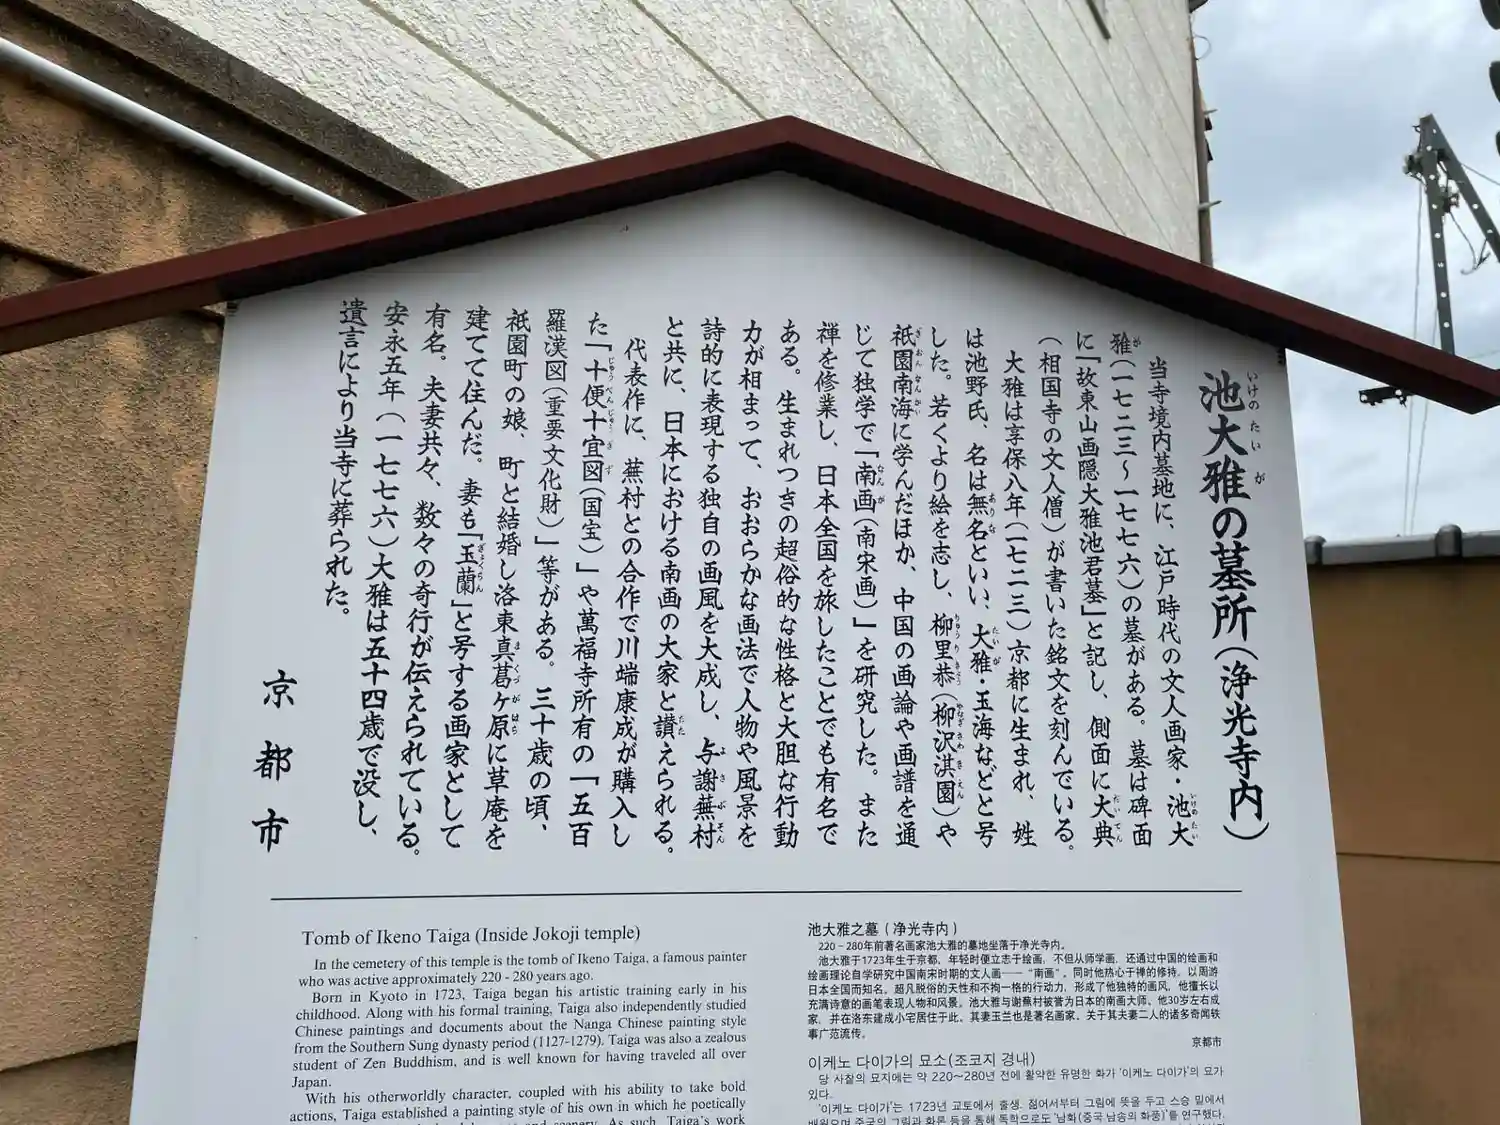 池大雅の墓所(浄光寺内)
いけのたいが
当寺境内墓地に、江戸時代の文人画家・池大
雅(一七二三〜一七七六)の墓がある。墓は碑面
に「故東山画隠大雅池君墓」と記し、側面に大典
(相国寺の文人僧)が書いた銘文を刻んでいる。
大雅は享保八年(一七二三)京都に生まれ、姓
は池野氏、名は無名といい、大雅・玉海などと号
した。若くより絵を志し、柳里恭(柳沢淇園)や
祇園南海に学んだほか、中国の画論や画譜を通
じて独学で「南画(南宋画)」を研究した。また
禅を修業し、日本全国を旅したことでも有名で
ある。生まれつきの超俗的な性格と大胆な行動
力が相まって、おおらかな画法で人物や風景を
詩的に表現する独自の画風を大成し、与謝蕪村
と共に、日本における南画の大家と讃えられる。
代表作に、蕪村との合作で川端康成が購入し
た「十便十宜図(国宝)」や萬福寺所有の「五百
羅漢図(重要文化財)」等がある。三十歳の頃、
祇園町の娘、町と結婚し洛東真葛ヶ原に草庵を
建てて住んだ。妻も「玉蘭」と号する画家として
有名。夫妻共々、数々の奇行が伝えられている。
安永五年(一七七六)大雅は五十四歳で没し、
遺言により当寺に葬られた。
京都市
Tomb of Ikeno Taiga (Inside Jokoji temple)
In the cemetery of this temple is the tomb of Ikeno Taiga, a famous painter
who was active approximately 220 - 280 years ago.
Born in Kyoto in 1723, Taiga began his artistic training early in his
childhood. Along with his formal training, Taiga also independently studied
Chinese paintings and documents about the Nanga Chinese painting style
from the Southern Sung dynasty period (1127-1279). Taiga was also a zealous
student of Zen Buddhism, and is well known for having traveled all over
Japan.
With his otherworldly character, coupled with his ability to take bold
actions, Taiga established a painting style of his own in which he poetically
and scenery. As such, Taiga's work
池大雅之墓(净光寺内)
220-280年前著名画家池大雅的墓地坐落于净光寺内。
池大雅于1723年生于京都，年轻时便立志于绘画，不但从师学画，还通过中国的绘画和
绘画理论自学研究中国南宋时期的文人画——“南画”。同时他热心于禅的修持，以周游
日本全国而知名。超凡脱俗的天性和不拘一格的行动力，形成了他独特的画风，他擅长以
充满诗意的画笔表现人物和风景。池大雅与谢蕪村被誉为日本的南画大师。他30岁左右成
家，并在洛东建成小宅居住于此。其妻玉兰也是著名画家。关于其夫妻二人的诸多奇闻轶
事广范流传。
京都市
이케노 다이가의 묘소(조코지 경내)
당 사찰의 묘지에는 약 220~280년 전에 활약한 유명한 화가 '이케노 다이가'의 묘가
있다.
'이케노 다이가'는 1723년 교토에서 출생. 젊어서부터 그림에 뜻을 두고 스승 밑에서
배웠으며 중국의 그림과 화론 등을 통해 독학으로도 '남화(중국 남송의 화풍)'를 연구했다.